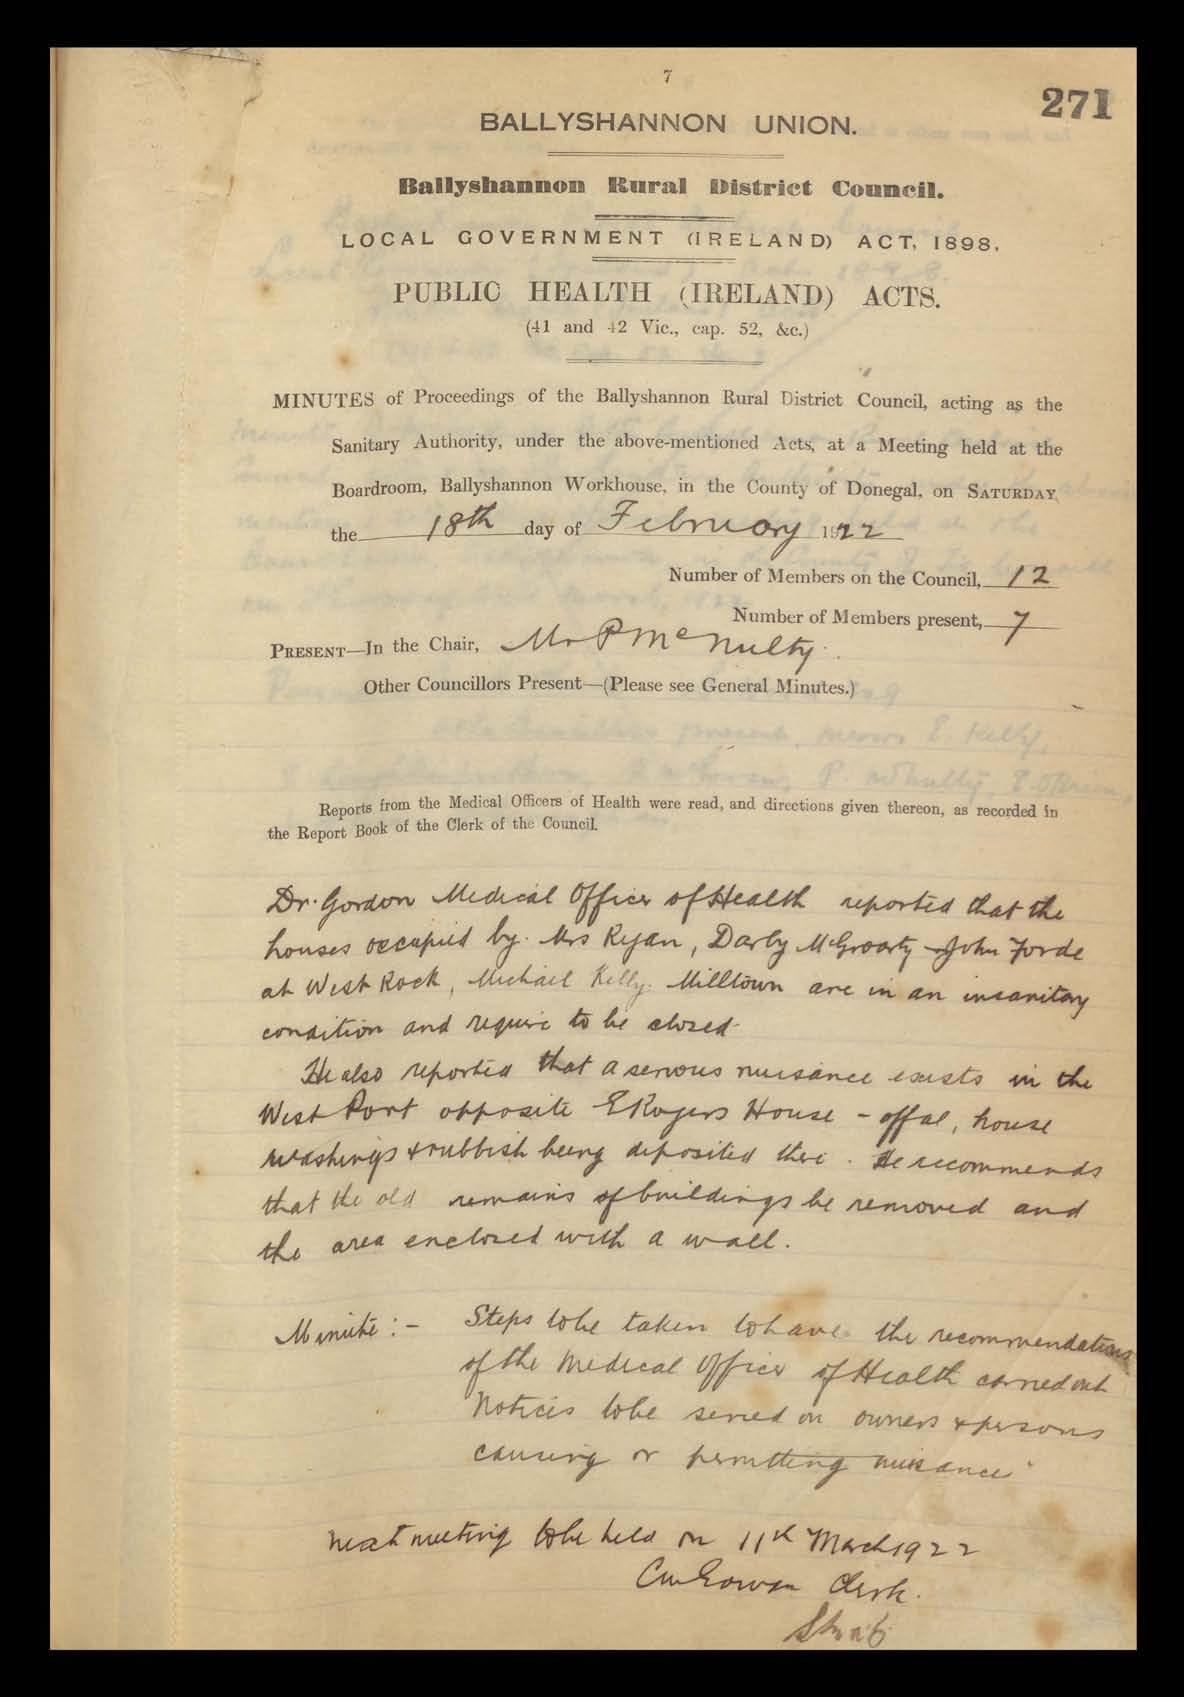 7
271
BALLYSHANNON UNION.
Ballyshannon Rural District Council.
LOCAL GOVERNMENT (IRELAND) ACT, 1898.
PUBLIC HEALTH (IRELAND) ACTS.
(41 and 42 Vic., cap. 52, &c.)
MINUTES of Proceedings of the Ballyshannon Rural District Council, acting as the
Sanitary Authority, under the above-mentioned Acts, at a Meeting held at the
Boardroom, Ballyshannon Workhouse, in the County of Donegal, on SATURDAY,
the 18th day of February 1922
Number of Members on the Council, 12
Number of Members present, 7
PRESENT—In the Chair, Mr P McNulty.
Other Councillors Present—(Please see General Minutes.)
Reports from the Medical Officers of Health were read, and directions given thereon, as recorded in
the Report Book of the Clerk of the Council.
Dr. Gordon Medical Officer of Health reported that the
houses occupied by Mrs Ryan, Darby McGroarty John Forde
at West Rock, Michael Kelly Milltown are in an insanitary
condition and require to be closed
He also reported that a serious nuisance exists in the
West Port opposite E Rogers House - offal, house
washings & rubbish being deposited there. He recommends
that the old remains of buildings be removed and
the area enclosed with a wall.
Minute :- Steps to be taken to have the recommendations
of the Medical Officer of Health carried out
Notices to be served on owners & persons
causing or permitting nuisance
Next meeting to be held on 11th March 1922
Clerk.